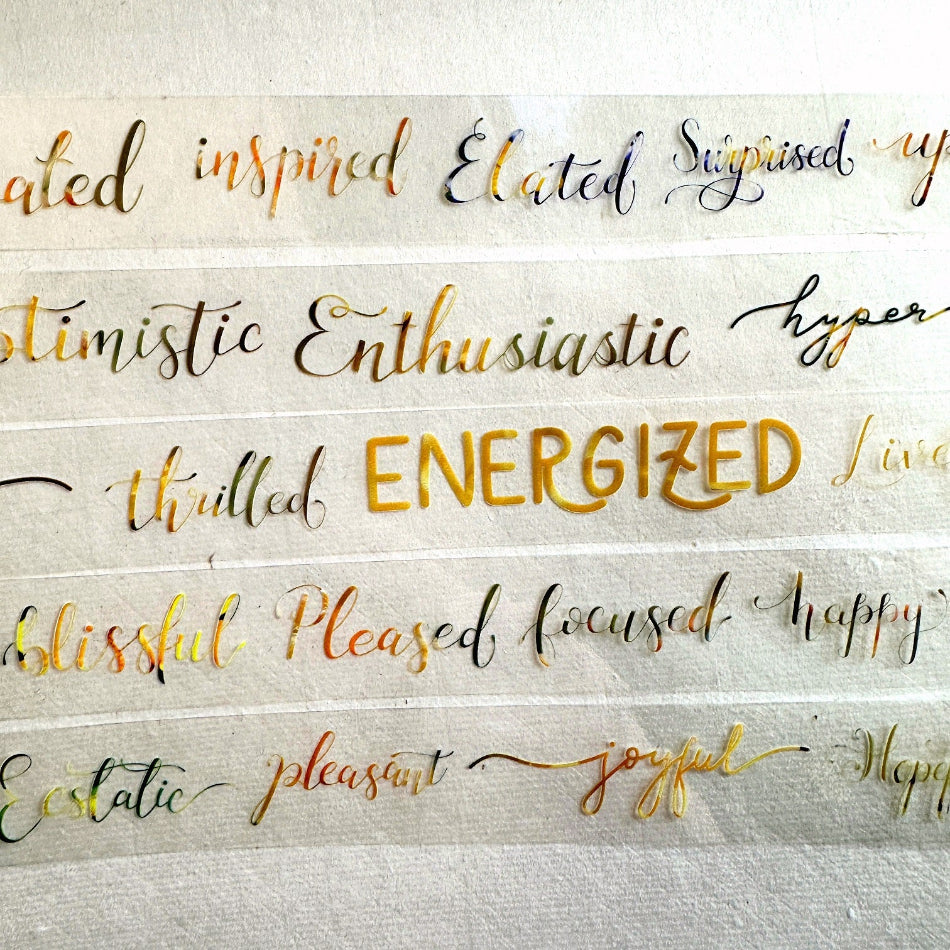 ated inspired Elated Surprised up
ptimistic Enthusiastic hyper
thrilled ENERGIZED Live
blissful Pleased focused happy
Ecstatic pleasant joyful Happ